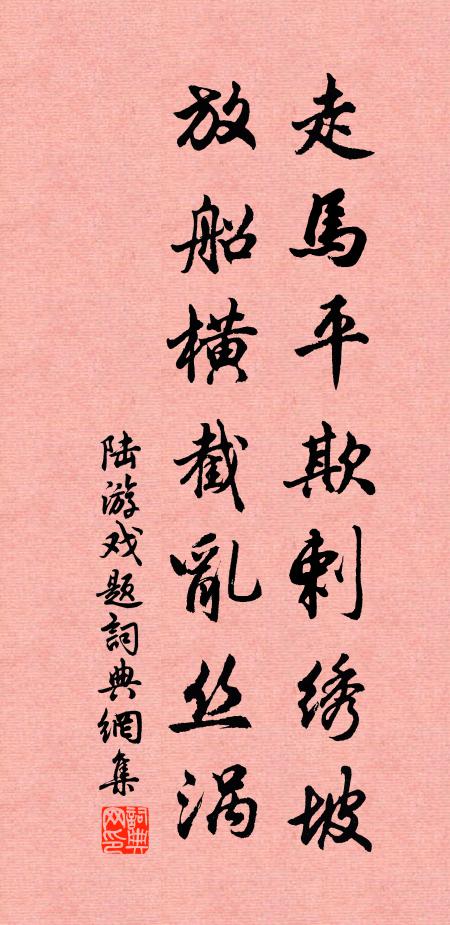 走馬平欺刺绣坡
放船橫截亂丝涡
陆游戏题詞典網集
詞典网印